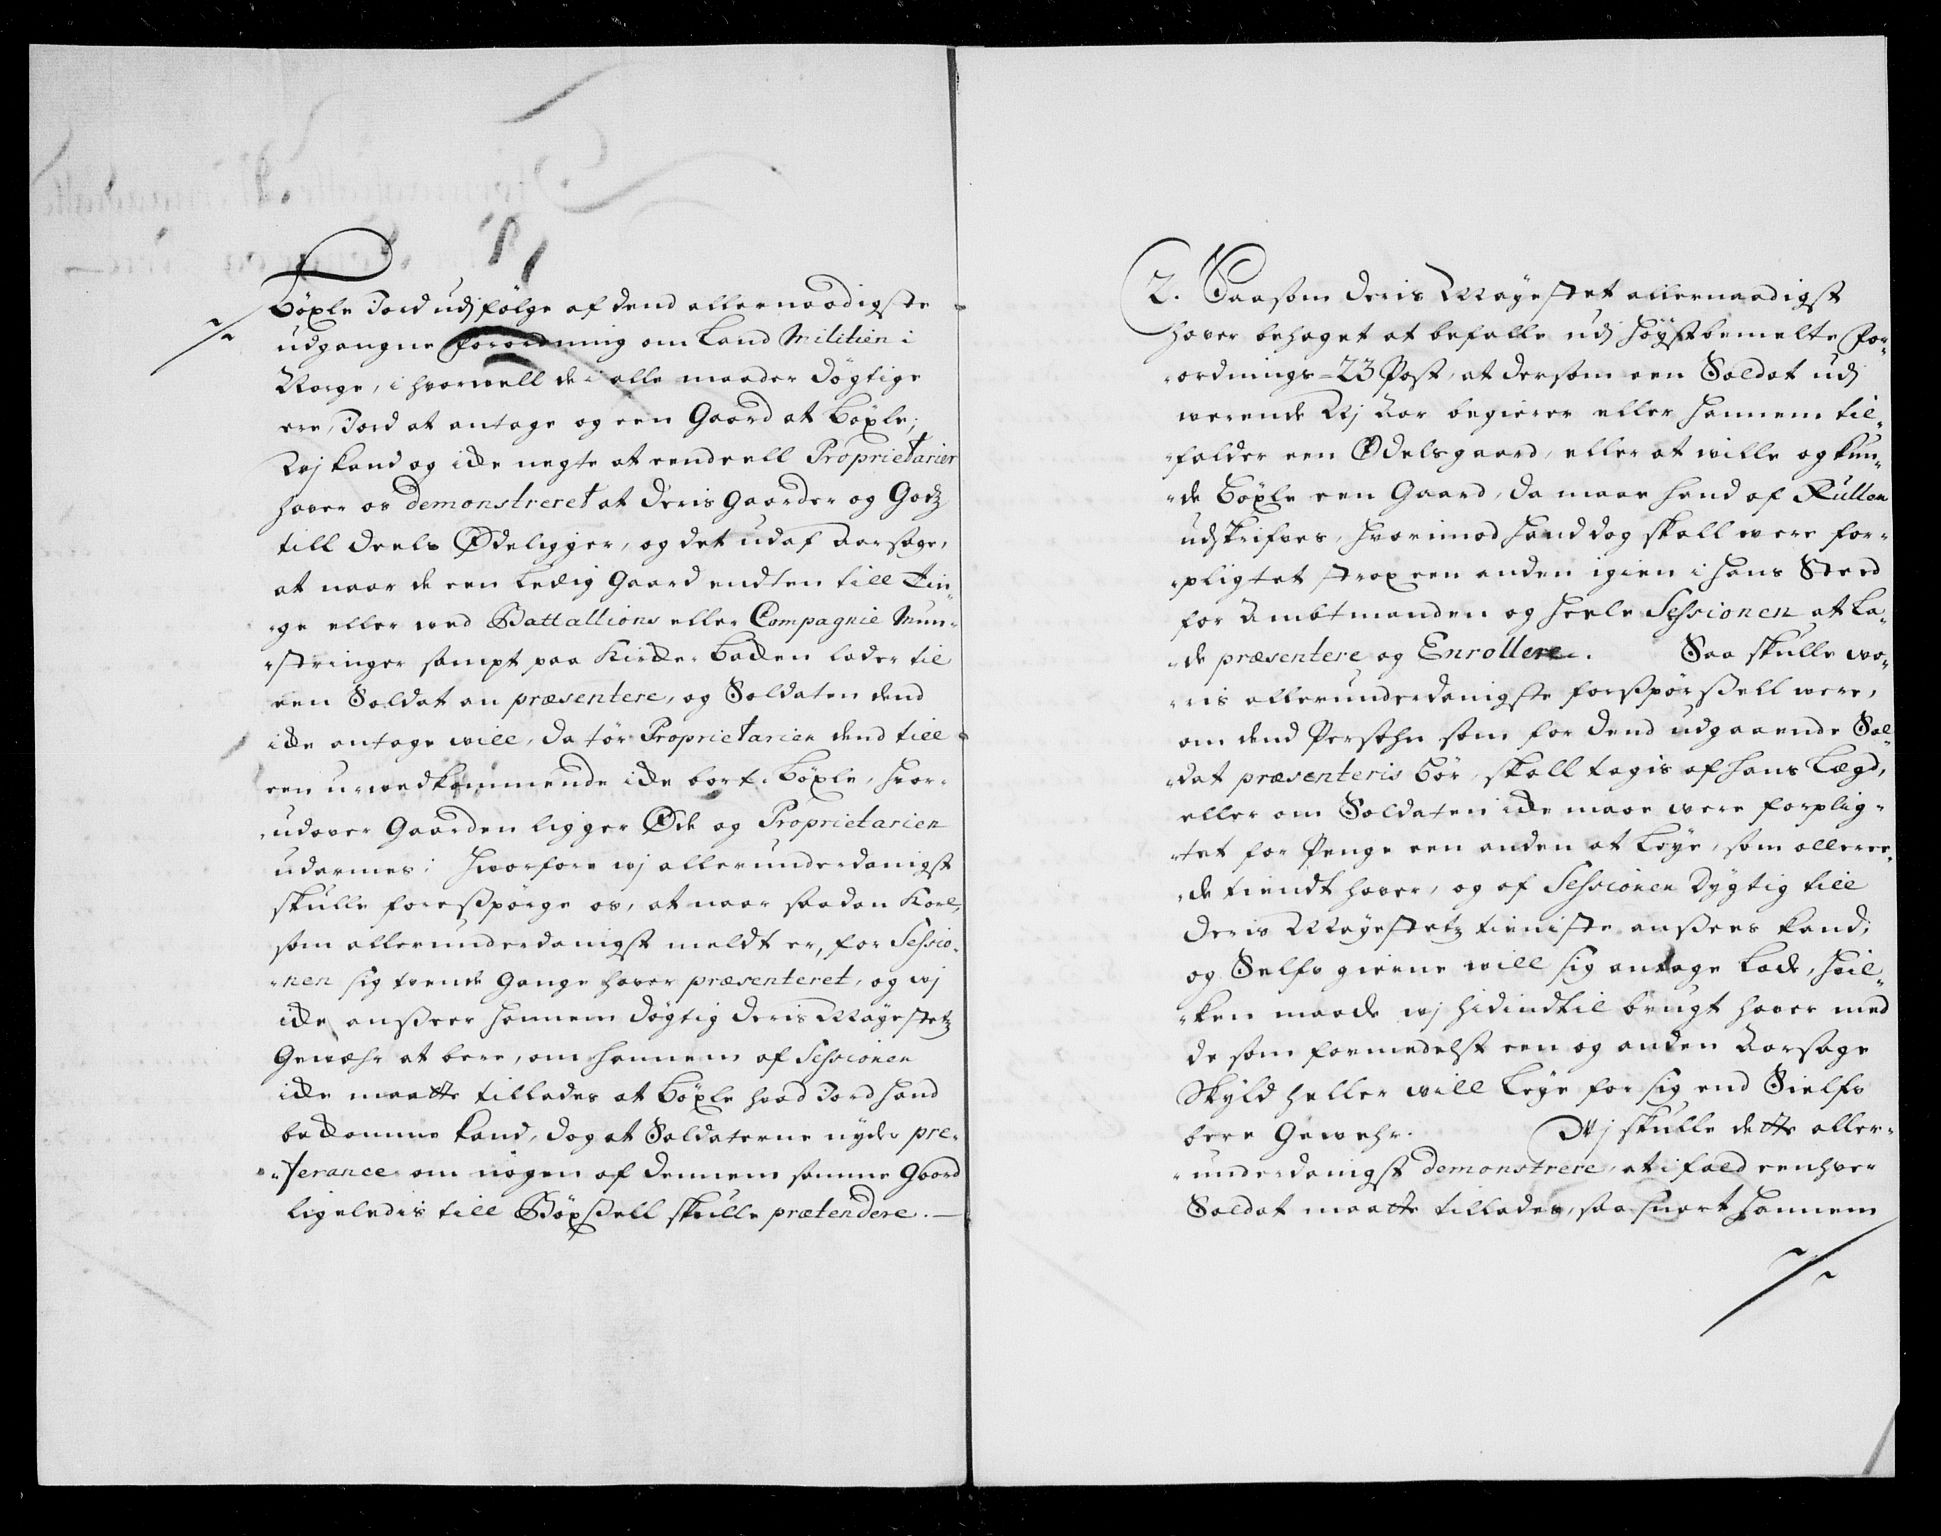 Böxle Jord udj fölge af dend allernaadigste
udgangne forordning om Land Militien i
Norge, i hvorwell de i alle maader dögtige
ere, Jord at antage og een Gaard at Böxle;
Wj kand og icke negte at eendeell Proprietarier
hawer os demonstreret at deris gaarder og Godz
till deels Ødeligger, og det udaf aarsage,
at naar de een Ledig Gaard endten till Tin-
-ge eller wed Battallions eller Compagnie Mun-
-stringer sampt paa Kircke-Backen lader til
een Soldat an præsentere, og Soldaten dend
icke antage will, da tör Proprietarien dend till
een uwedkommende icke bort-Böxle, hvor-
-udower Gaarden ligger Øde og Proprietarien
udarmes; Hworfore wj allerunderdanigst
skulle foresspörge os, at naar saadan Karl,
som allerunderdanigst meldt er, for Sessio-
-nen sig tvende Gange hawer præsenteret, og wj
icke ansseer hannem dögtig deris Mayestetz
Gewæhr at bere, om hannem af Sessionen
icke maatte tillades at Böxle hvad Jord hand
bekomme kand, dog at Soldaterne nyder pre-
-ferance om nogen af dennem samme Gaard
ligeledis till Böxssell skulle prætendere.—
2. Saasom deris Mayestet allernaadigst
hawer behaget at befalle udj höystbemelte For-
-ordnings-23 Post, at dersom een Soldat udj
werende Wj Aar begierer eller hannem til-
-falder een Odelsgaard, eller at wille og kun-
-de Böxle een Gaard, da maae hand af Rullen
udskrifves, hvorimod hand dog skall were for-
-pligtet strax een anden igien i hans Steed
for Ambtmanden og heele Sessionen at La-
-de præsentere og Enrollere. Saa skulle wo-
-ris allerunderdanigste forsspörssell were,
om dend Persohn som for dend udgaaende Sol-
-dat præsenteris bör, skall tagis af hans Lægd,
eller om Soldaten icke maae were forplig-
-tet for Penge een anden at Leye, som alleree-
-de tiendt hawer, og af Sessionen dygtig till
deris Mayestetz tieniste anssees kand;
og Selfv gierne will sig antage Lade, hvil-
-ken maade wj hidindtil brugt hawer med
de som formedelst een og anden Aarsage
Skyld heller will Leye for sig end Sielfv
bere Gewehr. Wj skulle dette aller-
-underdanigst demonstrere, at i fald eenhver
Soldat maatte tillades, saa snart hannem